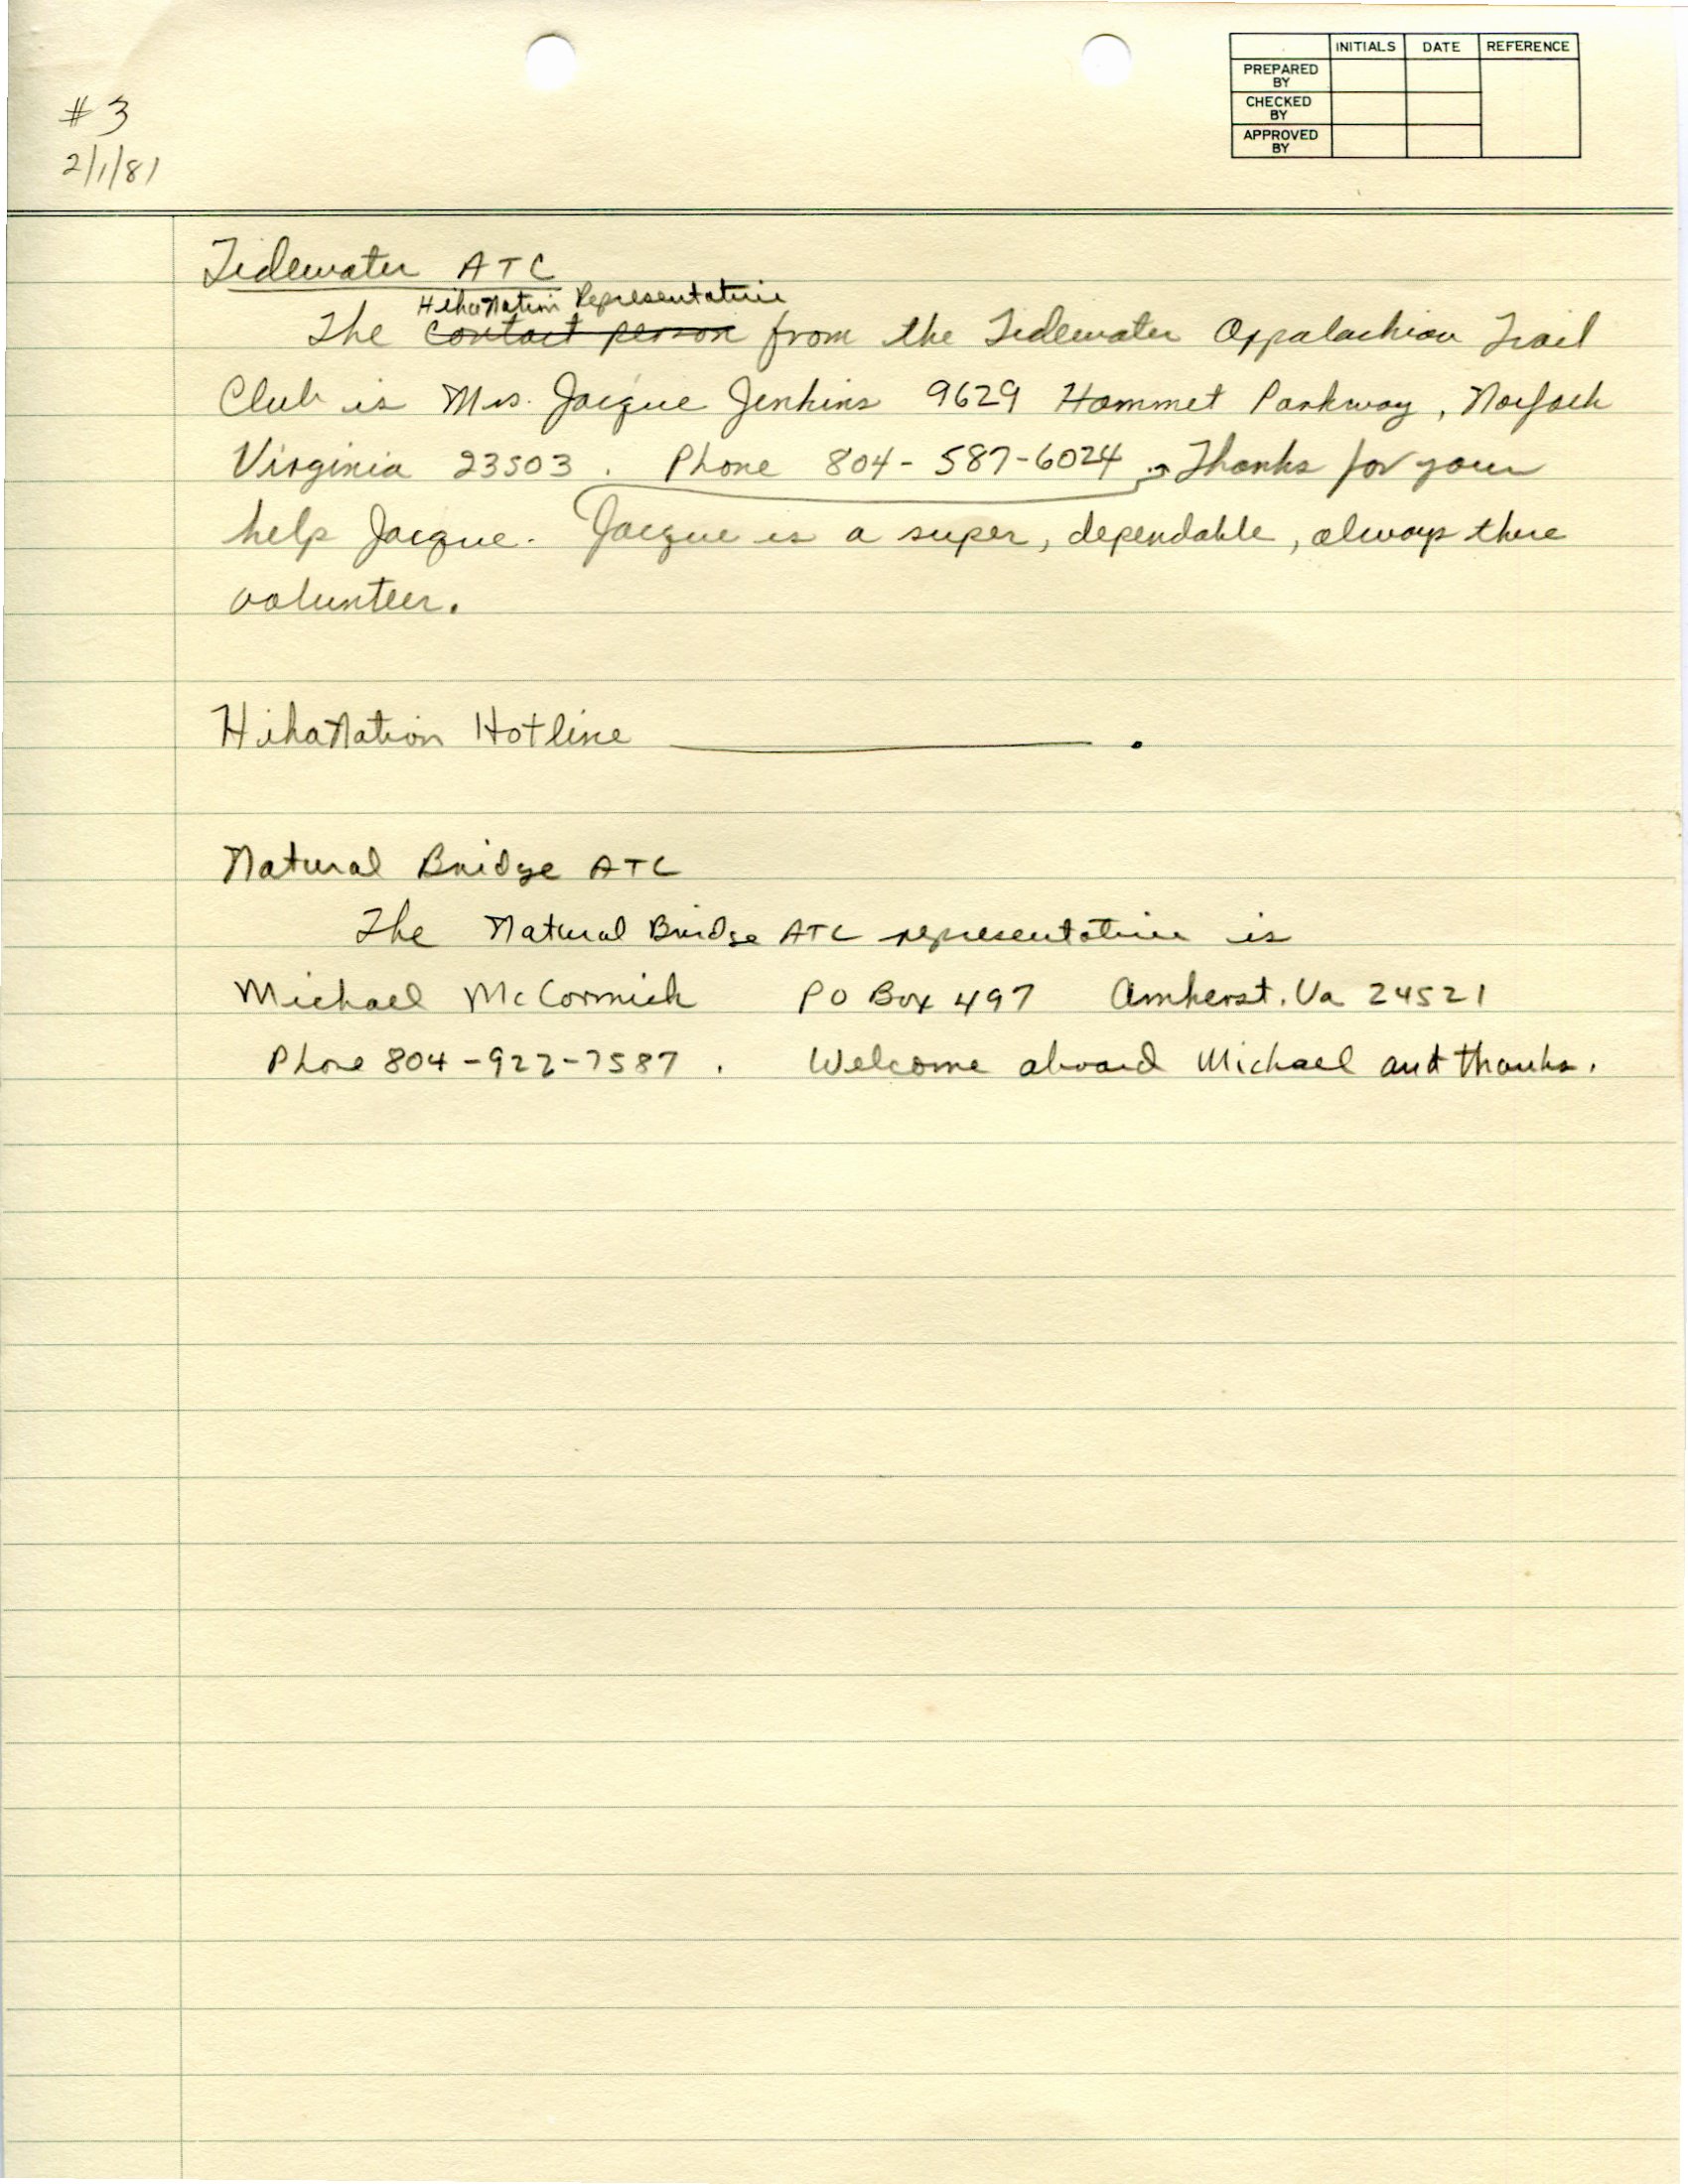 INITIALS DATE REFERENCE
PREPARED BY
CHECKED BY
APPROVED BY
#3
2/1/81
Tidewater ATC
HikaNation Representative
The contact person from the Tidewater Appalachian Trail
Club is Mrs. Jacque Jenkins 9629 Hammet Parkway, Norfolk
Virginia 23503. Phone 804-587-6024. Thanks for your
help Jacque. Jacque is a super, dependable, always there
volunteer.
HikaNation Hotline ____________.
Natural Bridge ATC
The Natural Bridge ATC representative is
Michael McCormick PO Box 497 Amherst, Va 24521
Phone 804-922-7587. Welcome aboard Michael and thanks.